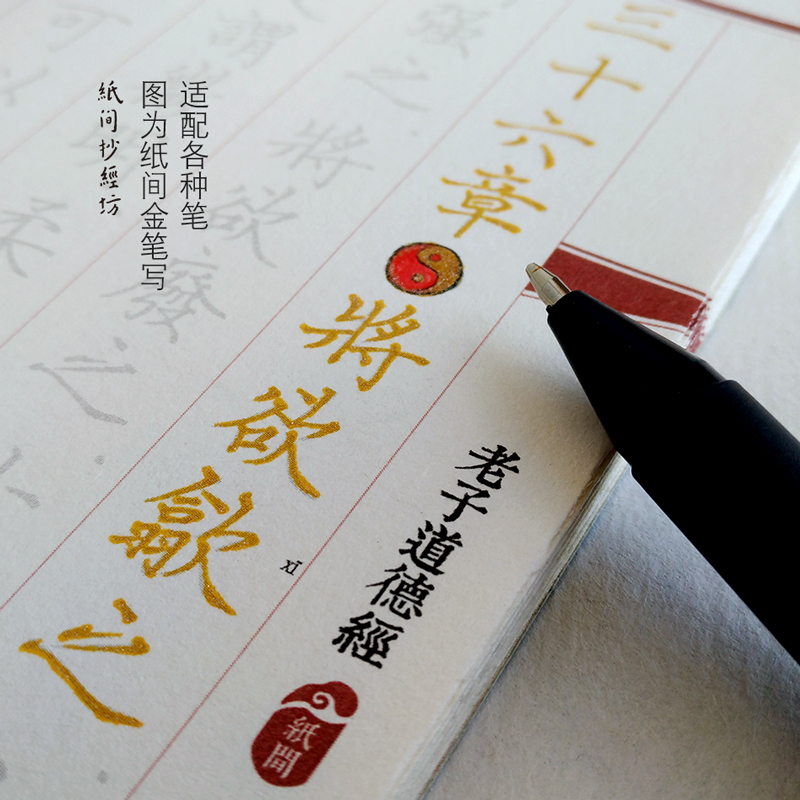 适配各种笔
图为纸间金笔写
紙间抄經坊
老子道德經
紙間
三十六章
將欲歙之
xī
强之
將欲廢之
謂
柔
可